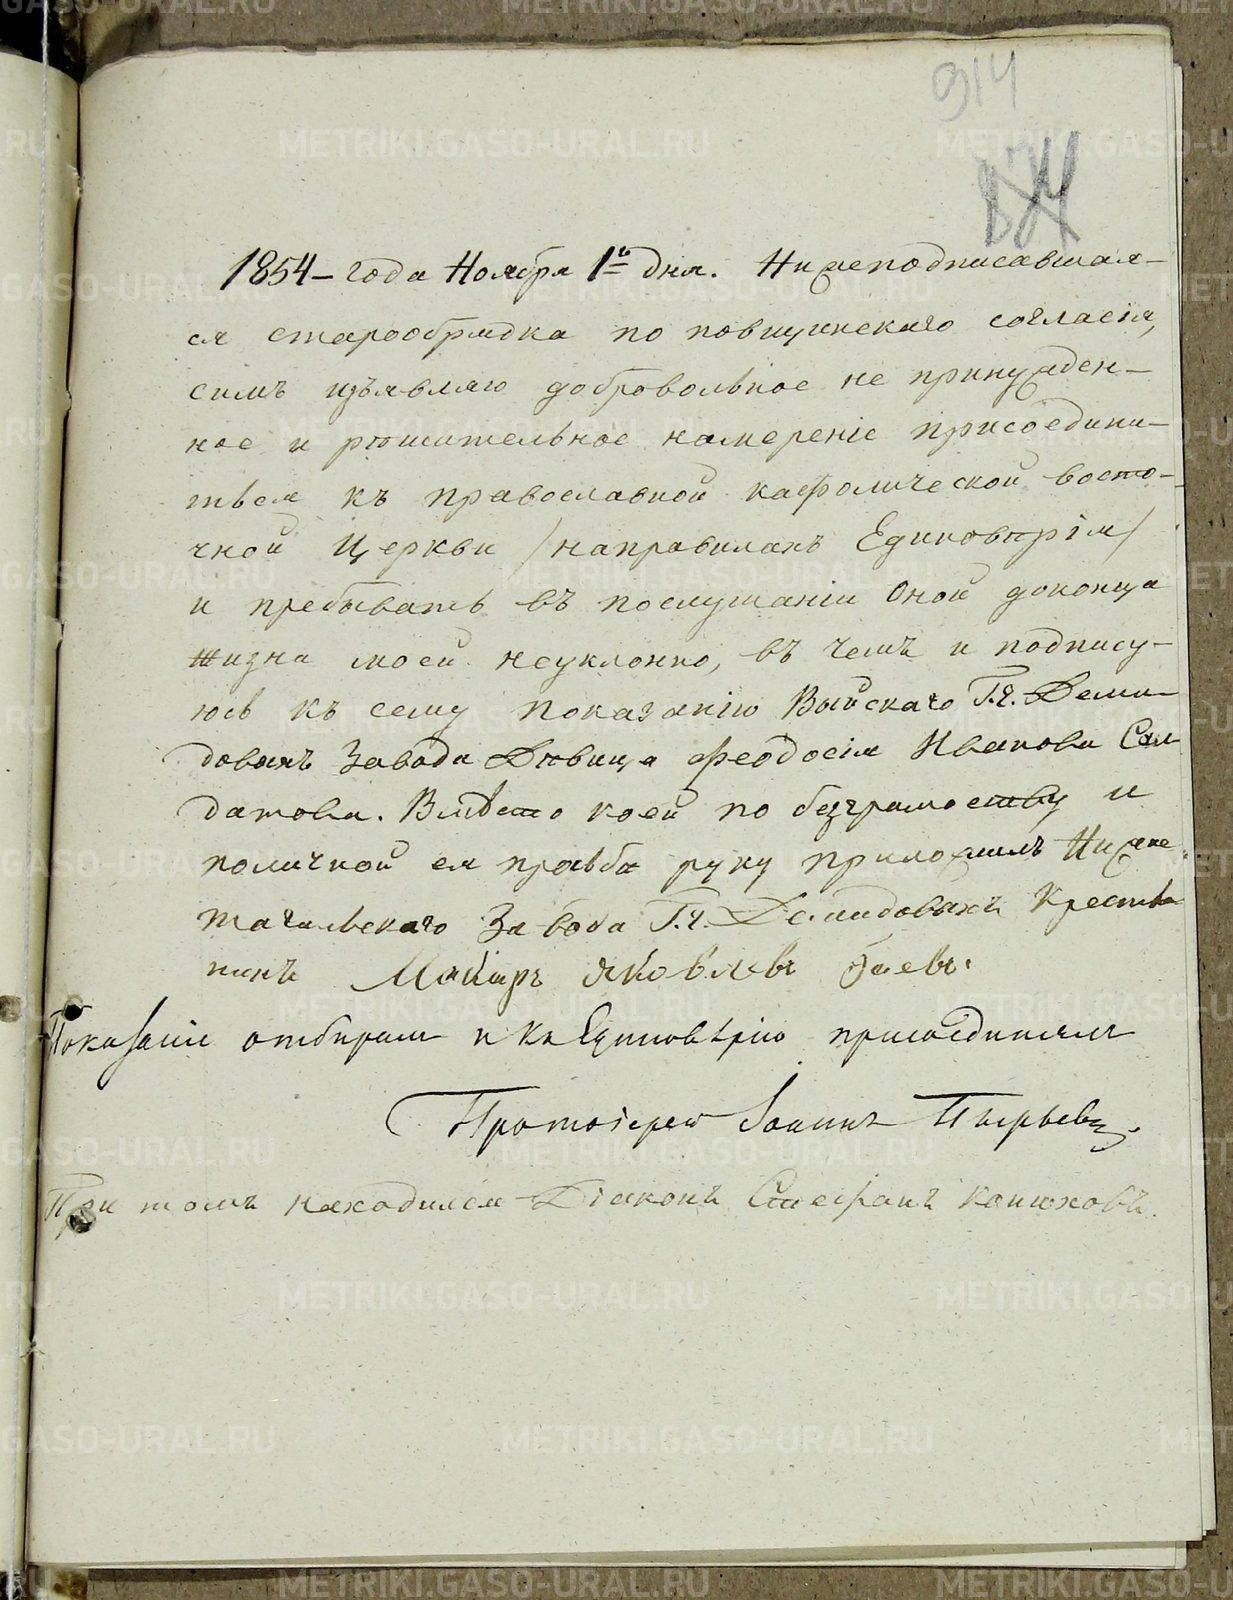 914
1854 – года Ноября 1го дня. Нижеподписавшая–
ся старообрядка по повщинскаго согласія,
симъ изъявляю добровольное не принужден–
ное и рѣшительное намереніе присоедини–
ться къ православной кафолической восто–
чной Церкви /направилахъ Единовѣрія/
и пребывать въ послушаніи Оной доконца
жизни моей неуклонно, въ чемъ и подпису–
юсь къ сему показанію Выйскаго Г.г. Деми–
довыхъ Завода Дѣвица Феодосія Иванова Сал
датова. Вмѣсто коей по безграмотству и
поличной ея прозьбѣ руку приложилъ Нижне
тагильскаго Завода Г.г. Демидовыхъ Крестья
нинъ Яковлевъ
Показаніе отбиралъ и къ Единовѣрію присоединялъ
Протоіерей Іоаннъ Пырьевъ.
При томъ находился Діаконъ Стефанъ Конюховъ.
METRIKI.GASO-URAL.RU